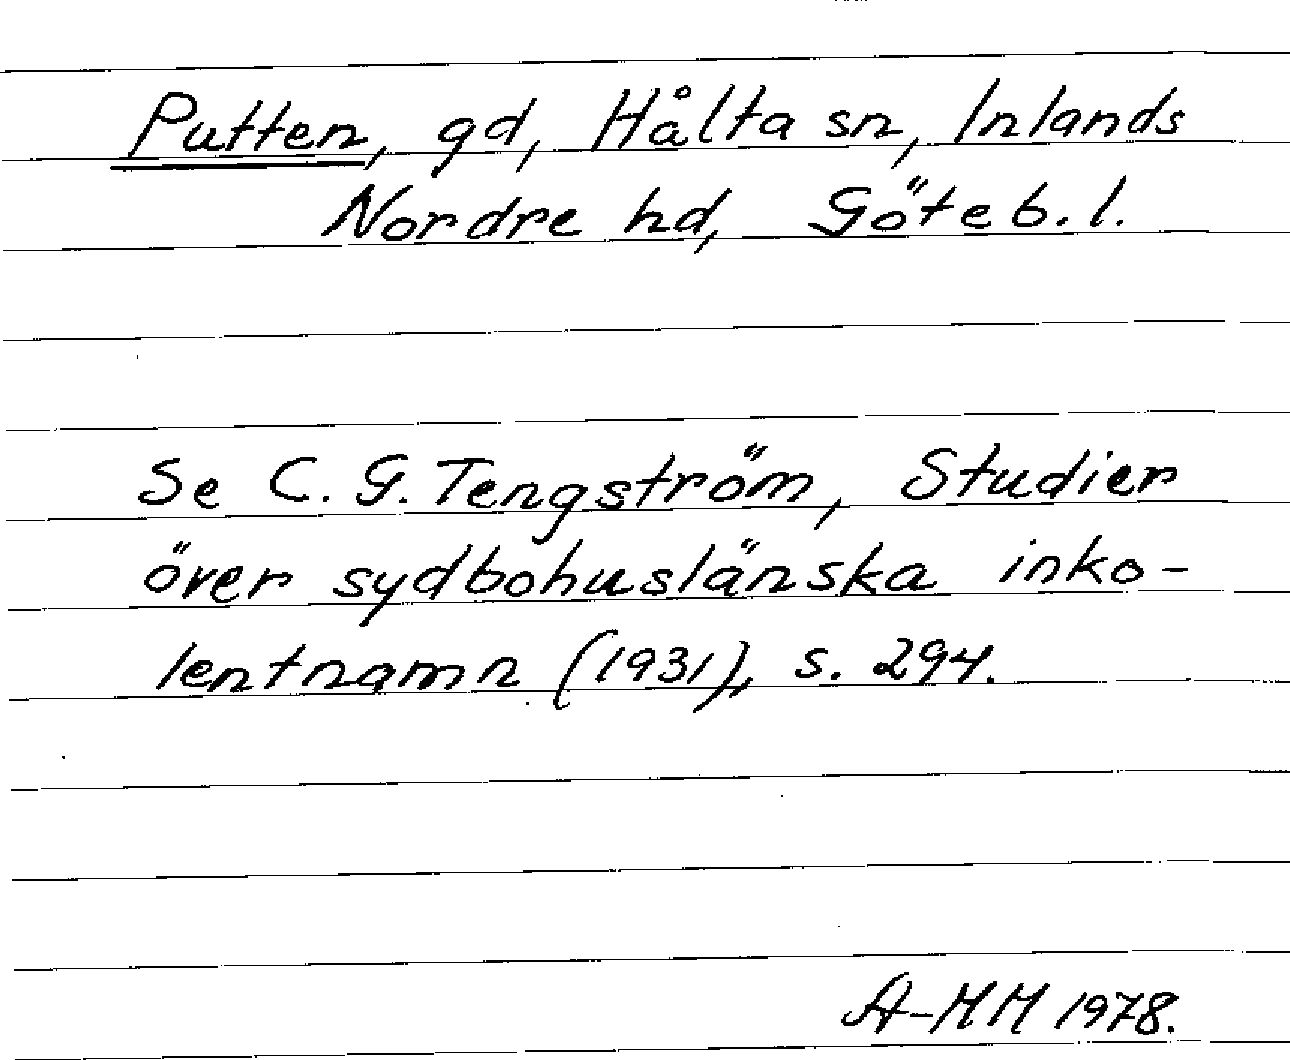 Putten, gd, Hålta sn, Inlands
Nordre hd, Göteb. l.
Se C. G. Tengström, Studier
över sydbohuslänska inko-
lentnamn (1931), s. 294.
A-MM 1978.